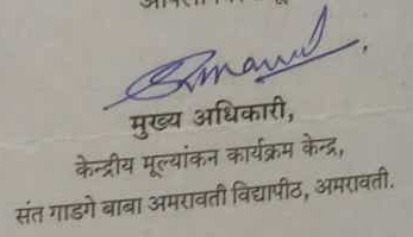 मुख्य अधिकारी,
केन्द्रीय मूल्यांकन कार्यक्रम केन्द्र,
संत गाडगे बाबा अमरावती विद्यापीठ, अमरावती.